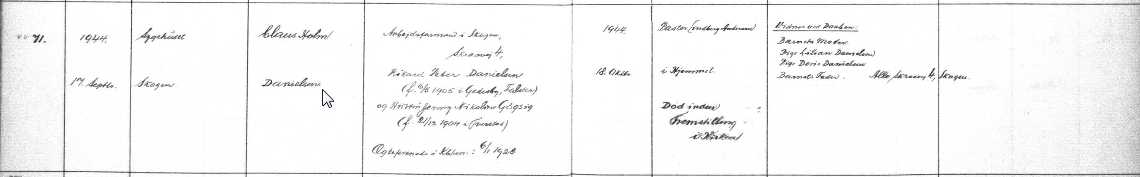 71.
1944.
17. Septbr.
Ægtefødt
Skagen
Claus Holm
Danielsen
Arbejdsformand i Skagen,
4,
Rikard Peter Danielsen
(f. 1905 i Gedesby, Falster)
og Nikoline
(f. 21/12 1904 i
Ægteforenede i Kbhvn.: 6/1 1928
1944
18. Oktbr.
Pastor Lindberg Andersen
i Hjemmet.
Død inden
Fremstilling
i Kirken
Vidner ved Daaben:
Barnets Moder
Pige Lilian Danielsen
Pige Doris Danielsen
Barnets Fader. Alle, 4, Skagen.